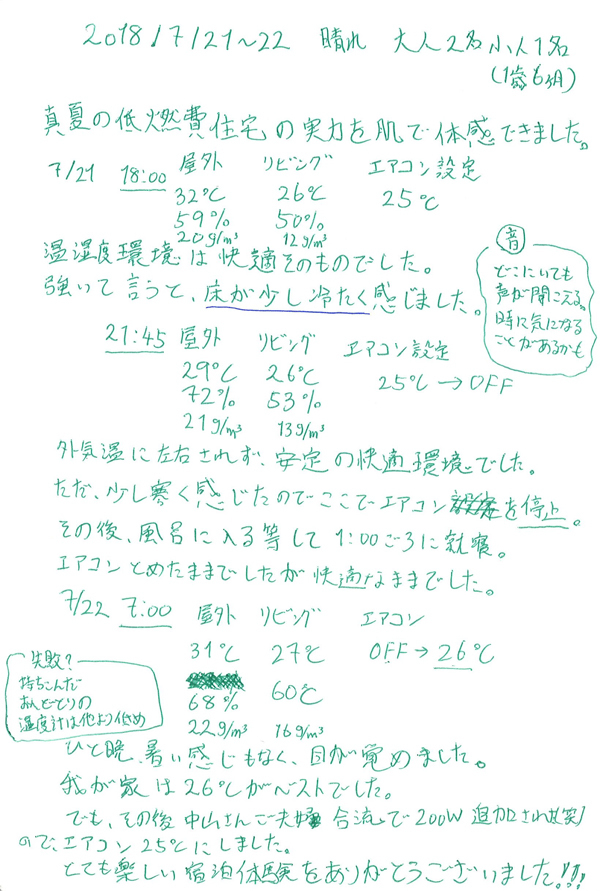 2018/7/21～22 晴れ 大人2名 小人1名
(1歳6ヶ月)
真夏の低燃費住宅の実力を肌で体感できました。
7/21 18:00 屋外 リビング エアコン設定
32℃ 26℃ 25℃
59% 50%
20g/m³ 12g/m³
温湿度環境は快適そのものでした。
強いて言うと、床が少し冷たく感じました。
音
どこにいても
声が聞こえる。
時に気になる
ことがあるかも
21:45 屋外 リビング エアコン設定
29℃ 26℃ 25℃→OFF
72% 53%
21g/m³ 13g/m³
外気温に左右されず、安定の快適環境でした。
ただ、少し寒く感じたのでここでエアコンを停止。
その後、風呂に入る等して1:00ごろに就寝。
エアコンとめたままでしたが快適なままでした。
7/22 7:00 屋外 リビング エアコン
31℃ 27℃ OFF→26℃
68% 60℃
22g/m³ 16g/m³
失敗?
持ちこんだ
おんどとりの
湿度計は他より低め
ひと晩、暑い感じもなく、目が覚めました。
我が家は26℃がベストでした。
でも、その後中山さんご夫婦合流で200W追加され(笑)
ので、エアコン25℃にしました。
とても楽しい宿泊体験をありがとうございました!!!